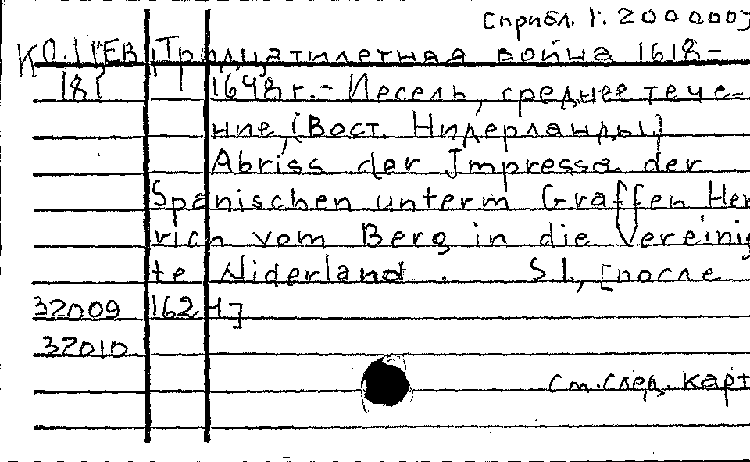 Сприбл. 1: 2000003
К0.11ЦЕВ Тридцатилетная война 1618-
181 1648 г. - Иесель, среднее тече-
ние, (Вост. Нидерланды)
Abriss der Impressa der
Spanischen unterm Graffen Hen
rich vom Berg in die Vereinig
te Niderland. S.l., [после
32009 1624]
32010
См. след. карт